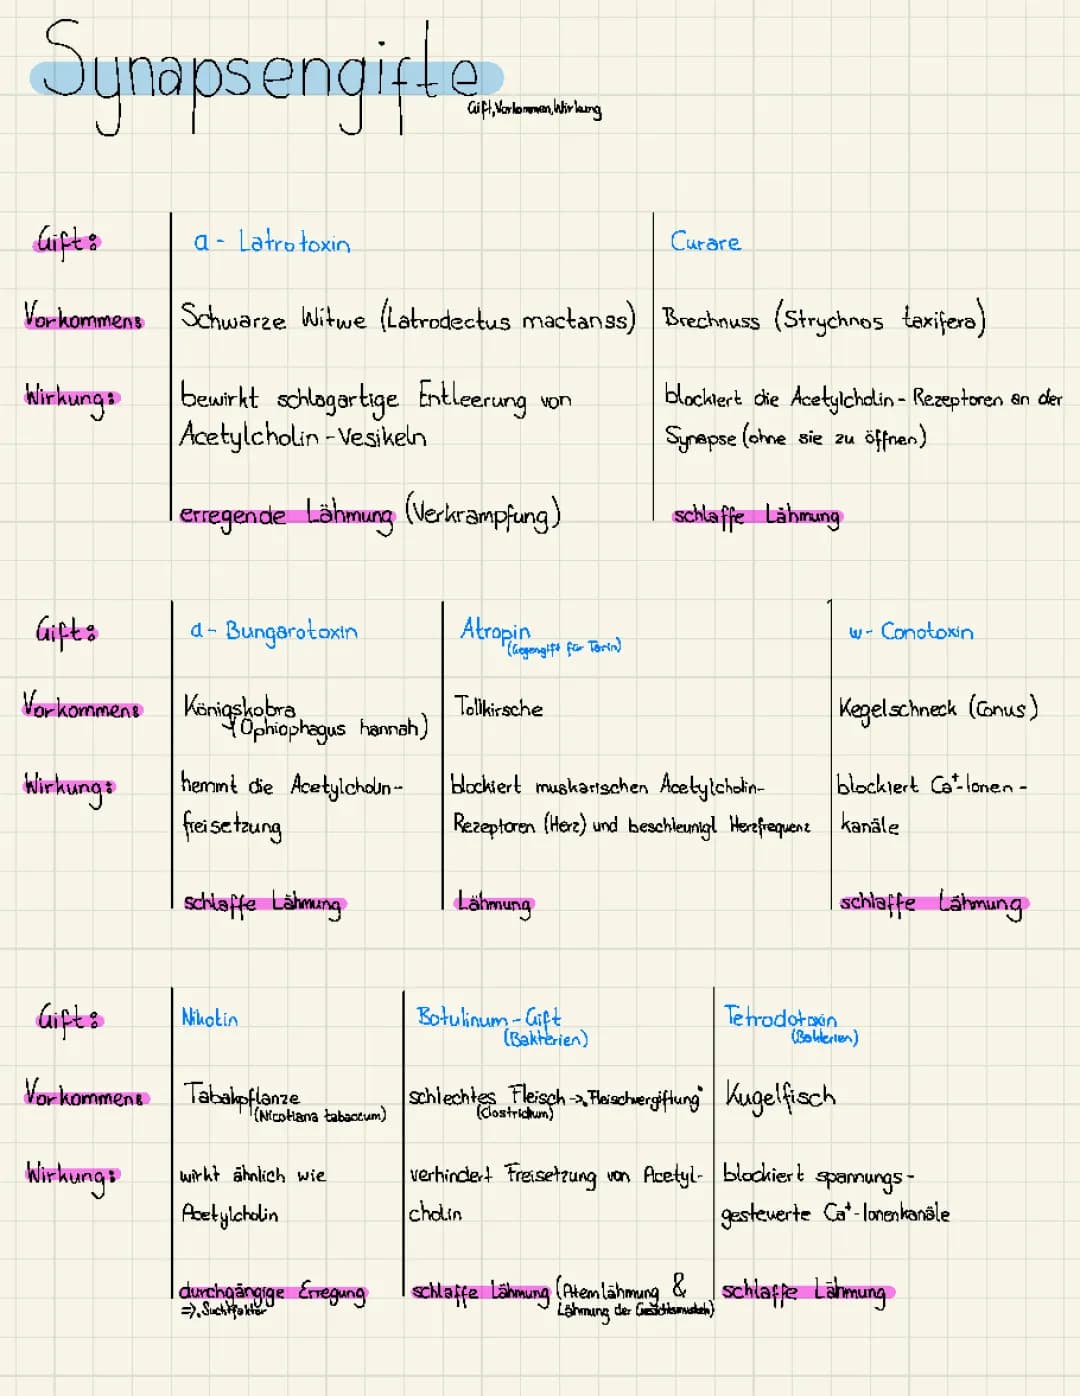 Synapsengifte
Gift, Vorkommen, Wirkung
Gift: a - Latrotoxin Curare
Vorkommen: Schwarze Witwe (Latrodectus mactanss) Brechnuss (Strychnos toxifera)
Wirkung: bewirkt schlagartige Entleerung von blockiert die Acetylcholin - Rezeptoren an der
Acetylcholin - Vesikeln Synapse (ohne sie zu öffnen)
erregende Lähmung (Verkrampfung) schlaffe Lähmung
Gift: a - Bungarotoxin Atropin w - Conotoxin
(Gegengift für Tarin)
Vorkommen: Königskobra Tollkirsche Kegelschneck (Conus)
(Ophiophagus hannah)
Wirkung: hemmt die Acetylcholin- blockiert muskarischen Acetylcholin- blockiert Ca⁺-Ionen -
freisetzung Rezeptoren (Herz) und beschleunigt Herzfrequenz kanäle
schlaffe Lähmung Lähmung schlaffe Lähmung
Gift: Nikotin Botulinum - Gift Tetrodotoxin
(Bakterien) (Bakterien)
Vorkommen: Tabakpflanze schlechtes Fleisch -> „Fleischvergiftung" Kugelfisch
(Nicotiana tabaccum) (Clostridium)
Wirkung: wirkt ähnlich wie verhindert Freisetzung von Acetyl- blockiert spannungs-
Acetylcholin cholin gesteuerte Ca⁺-Ionenkanäle
durchgängige Erregung schlaffe Lähmung (Atemlähmung & schlaffe Lähmung
=> Suchtfaktor Lähmung der Gesichtsmuskeln)